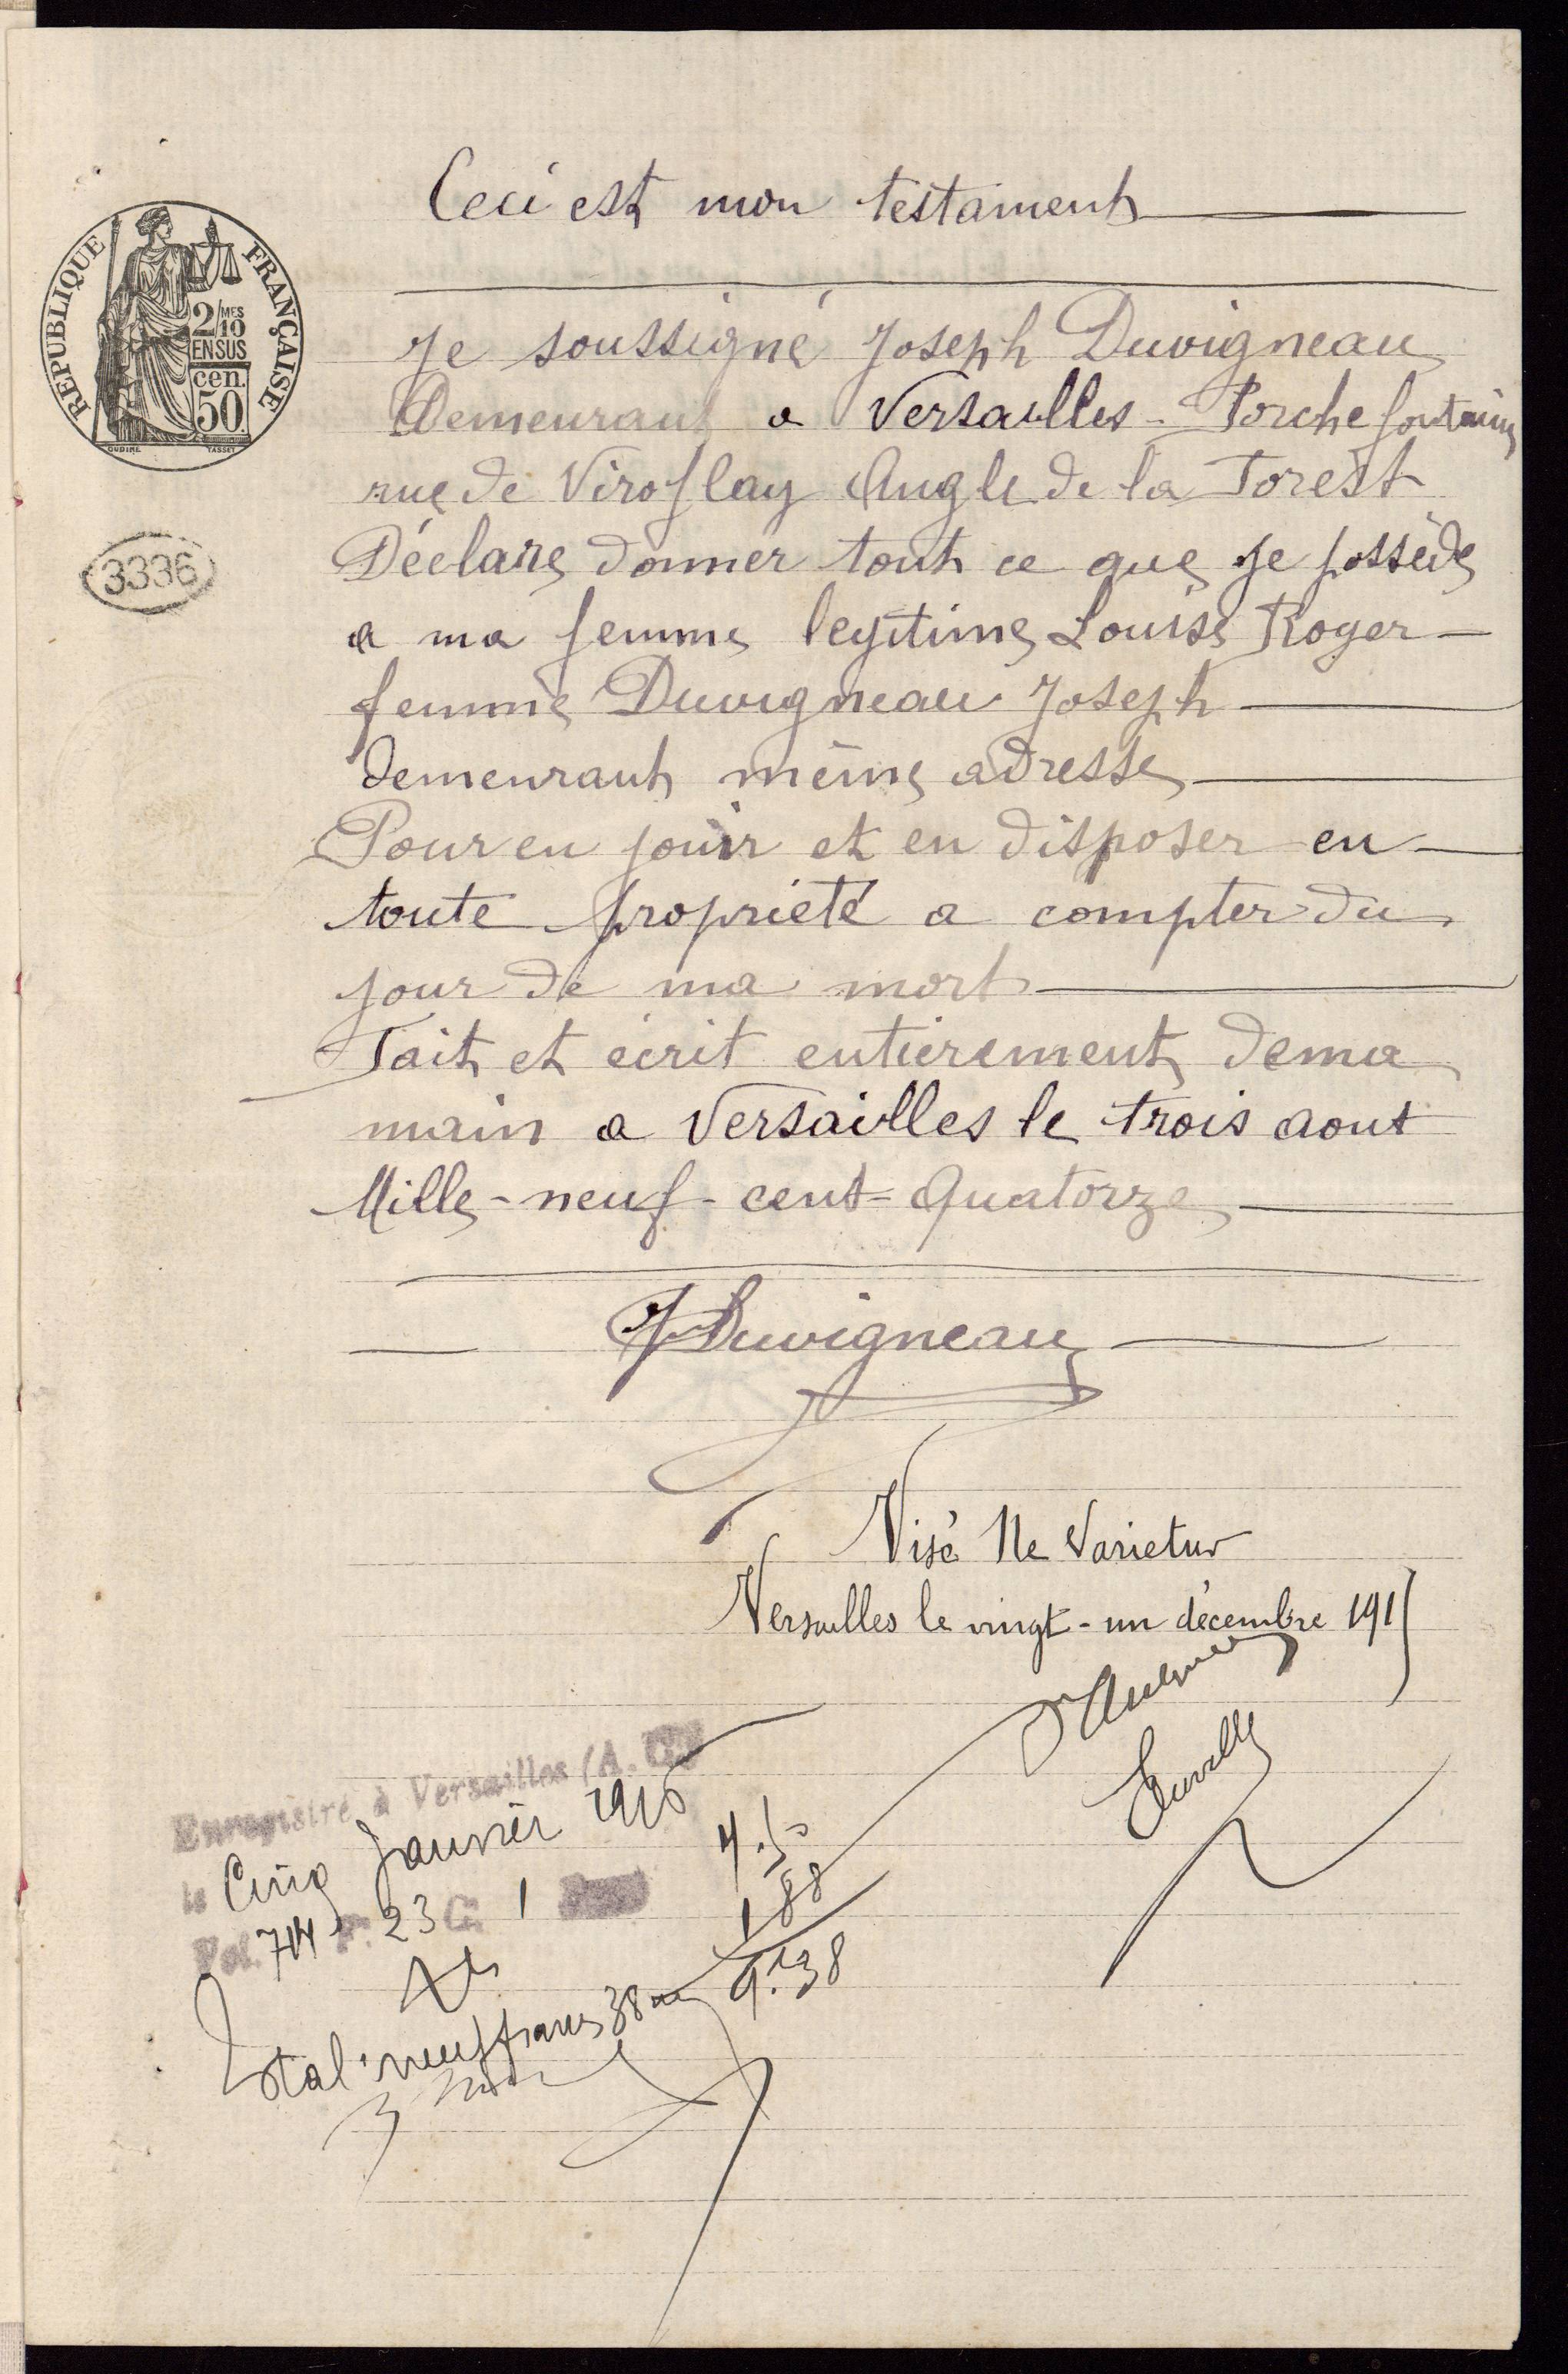 Ceci est mon testament
REPUBLIQUE FRANÇAISE
2/MES
10
EN SUS
cen.
50.
OUDINÉ TASSET
Je soussigné Joseph Duvigneau
Demeurant a Versailles - Porchefontaine
rue de Viroflay Angle de la Forest
Déclare donner tout ce que je possède
3336
a ma femme legitime Louise Roger
femme Duvigneau Joseph
demeurant même adresse
Pour en jouir et en disposer en
toute propriété a compter du
jour de ma mort
Fait et écrit entièrement de ma
main a Versailles le trois aout
Mille - neuf - cent = Quatorze
J Duvigneau
Visé Ne Varietur
Versailles le vingt-un décembre 1915
Enregistré à Versailles (A.
le Cinq Janvier 1916
Vol. 714 F. 23 C. 1
7.50
1 88
9.38
Total: neuf francs 38